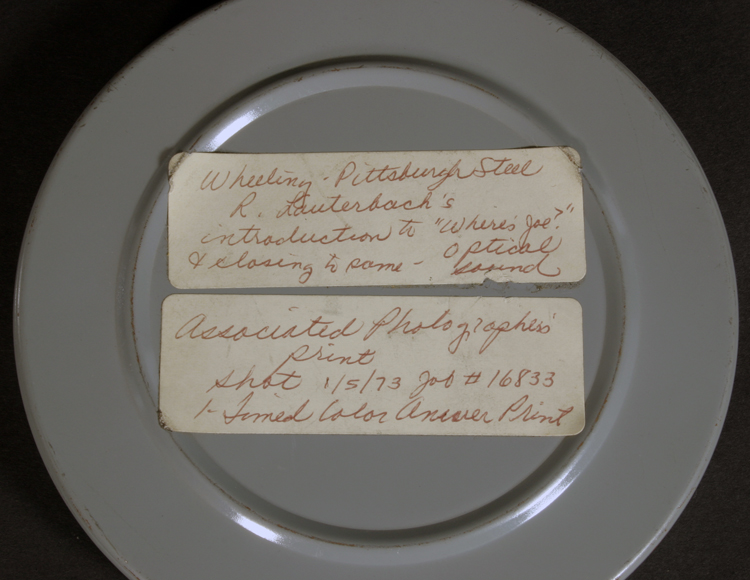 Wheeling-Pittsburgh Steel
R. Lauterbach's
introduction to "Where's Joe?"
& closing to same - Optical
Sound
Associated Photographers'
print
shot 1/5/73 Job # 16833
1- Timed Color Answer Print